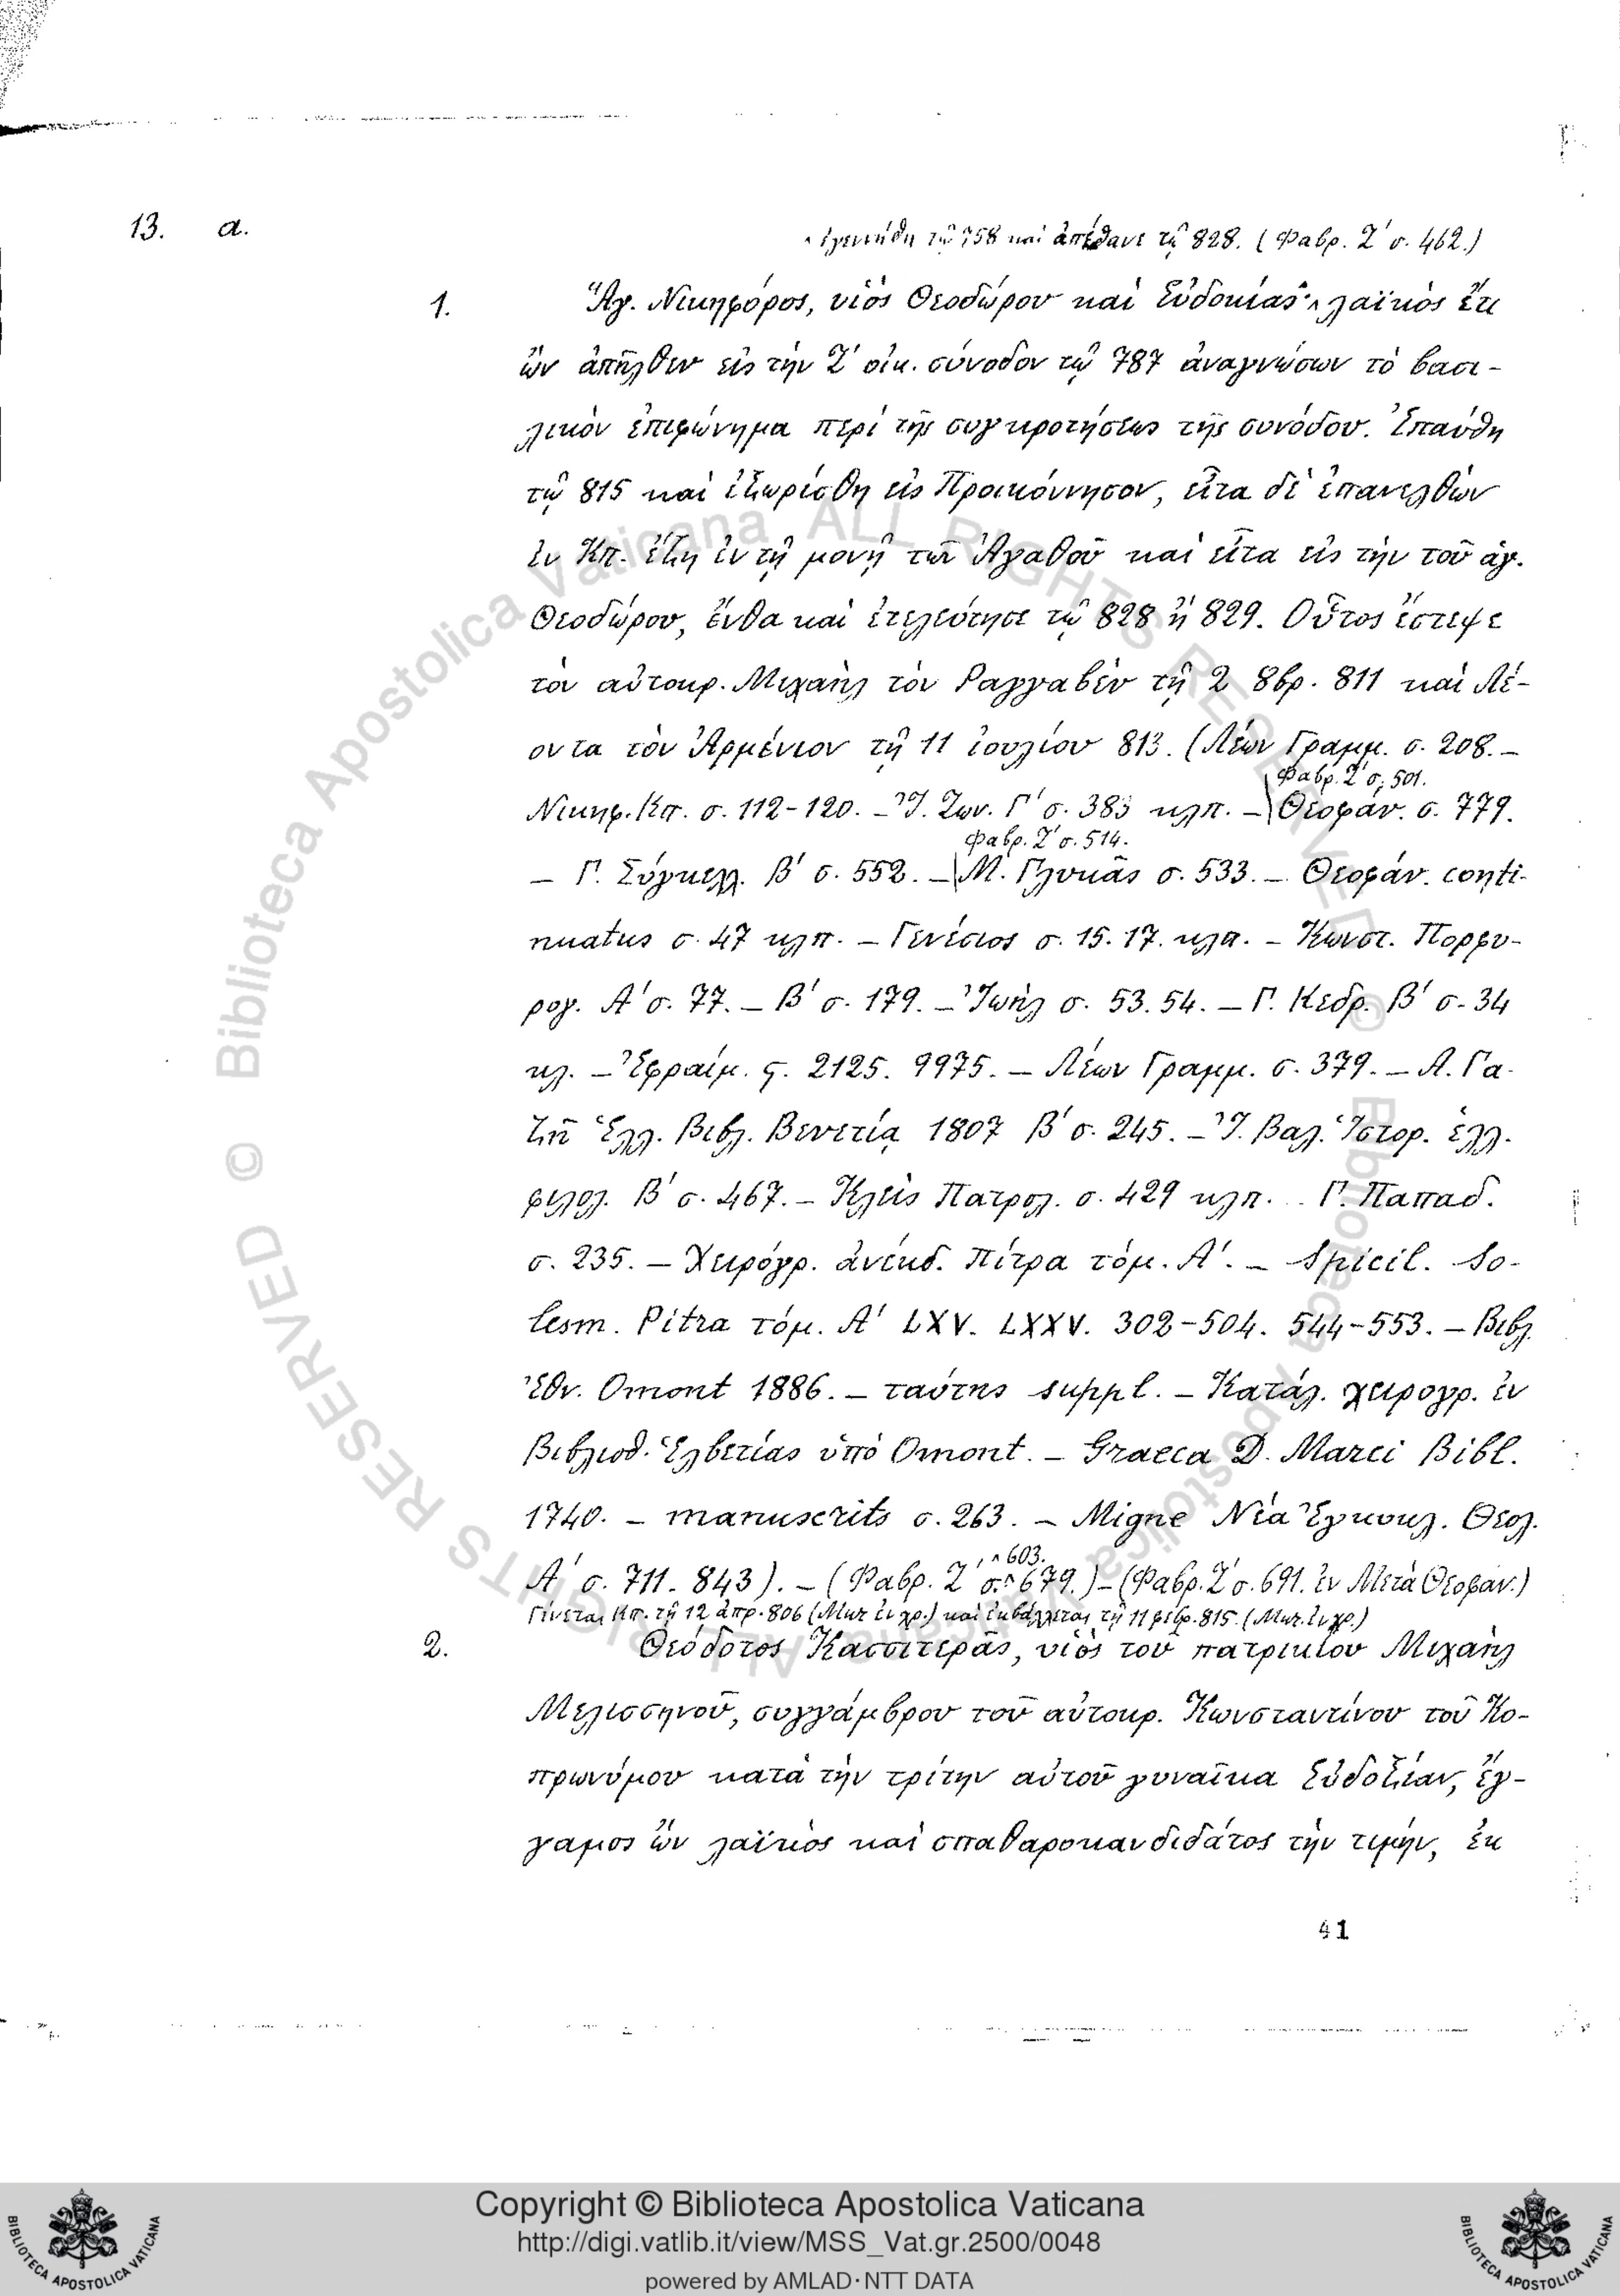 13. α.
^ ἐγεννήθη τῷ 758 καὶ ἀπέθανε τῷ 828. (Φαβρ. Ζ' σ. 462.)
1. Ἅγ. Νικηφόρος, υἱὸς Θεοδώρου καὶ Εὐδοκίας ^ λαϊκὸς ἔτι
ὢν ἀπῆλθεν εἰς τὴν Ζ' οἰκ. σύνοδον τῷ 787 ἀναγνώσων τὸ βασι-
λικὸν ἐπιφώνημα περὶ τῆς συγκροτήσεως τῆς συνόδου. Ἐπαύθη
τῷ 815 καὶ ἐξωρίσθη εἰς Προικόννησον, εἶτα δὲ ἐπανελθὼν
ἐν Κπ. ἔζη ἐν τῇ μονῇ τοῦ Ἀγαθοῦ καὶ εἶτα εἰς τὴν τοῦ ἁγ.
Θεοδώρου, ἔνθα καὶ ἐτελεύτησε τῷ 828 ἢ 829. Οὗτος ἔστεψε
τὸν αὐτοκρ. Μιχαὴλ τὸν Ραγγαβὲν τῇ 2 8βρ. 811 καὶ Λέ-
οντα τὸν Ἀρμένιον τῇ 11 ἰουλίου 813. (Λέων Γραμμ. σ. 208. –
Φαβρ. Ζ' σ. 501.
Νικηφ. Κπ. σ. 112-120. – Ἰ. Ζων. Γ' σ. 383 κλπ. – Θεοφάν. σ. 779.
Φαβρ. Ζ' σ. 514.
– Γ. Σύγκελλ. Β' σ. 552. – Μ. Γλυκᾶς σ. 533. – Θεοφάν. conti-
nuatus σ. 47 κλπ. – Γενέσιος σ. 15. 17. κλπ. – Κωνστ. Πορφυ-
ρογ. Α' σ. 77. – Β' σ. 179. – Ἰωὴλ σ. 53. 54. – Γ. Κεδρ. Β' σ. 34
κλ. – Ἐφραίμ. ς. 2125. 9975. – Λέων Γραμμ. σ. 379. – Α. Γα-
ζῆ Ἑλλ. Βιβλ. Βενετίᾳ 1807 Β' σ. 245. – Ἰ. Βαλ. Ἱστορ. ἑλλ.
φιλολ. Β' σ. 467. – Κλεὶς Πατρολ. σ. 429 κλπ. – Γ. Παπαδ.
σ. 235. – Χειρόγρ. ἀνέκδ. Πίτρα τόμ. Α'. – Spicil. So-
lesm. Pitra τόμ. Α' LXV. LXXV. 302-504. 544-553. – Βιβλ.
Ἐθν. Omont 1886. – ταύτης suppl. – Κατάλ. χειρογρ. ἐν
Βιβλιοθ. Ἑλβετίας ὑπὸ Omont. – Graeca D. Marci Bibl.
1740. – manuscrits σ. 263. – Migne Νέα Ἐγκυκλ. Θεολ.
^ 603.
Α' σ. 711. 843). – (Φαβρ. Ζ' σ. ^ 679.) – (Φαβρ. Ζ' σ. 691. ἐν Μετὰ Θεοφαν.)
Γίνεται Κπ. τῇ 12 ἀπρ. 806 (Μυζ ἐν χρ.) καὶ ἐκβάλλεται τῇ 11 φεβρ. 815. (Μυζ. ἐν χρ.)
2. Θεόδοτος Κασσιτερᾶς, υἱὸς τοῦ πατρικίου Μιχαὴλ
Μελισσηνοῦ, συγγάμβρου τοῦ αὐτοκρ. Κωνσταντίνου τοῦ Κο-
πρωνύμου κατὰ τὴν τρίτην αὐτοῦ γυναῖκα Εὐδοξίαν, ἔγ-
γαμος ὢν λαϊκὸς καὶ σπαθαροκανδιδάτος τὴν τιμήν, ἐκ
41
© Biblioteca Apostolica Vaticana ALL RIGHTS RESERVED
© Biblioteca Apostolica Vaticana ALL RIGHTS RESERVED
Copyright © Biblioteca Apostolica Vaticana
http://digi.vatlib.it/view/MSS_Vat.gr.2500/0048
powered by AMLAD·NTT DATA
BIBLIOTECA APOSTOLICA VATICANA
BIBLIOTECA APOSTOLICA VATICANA